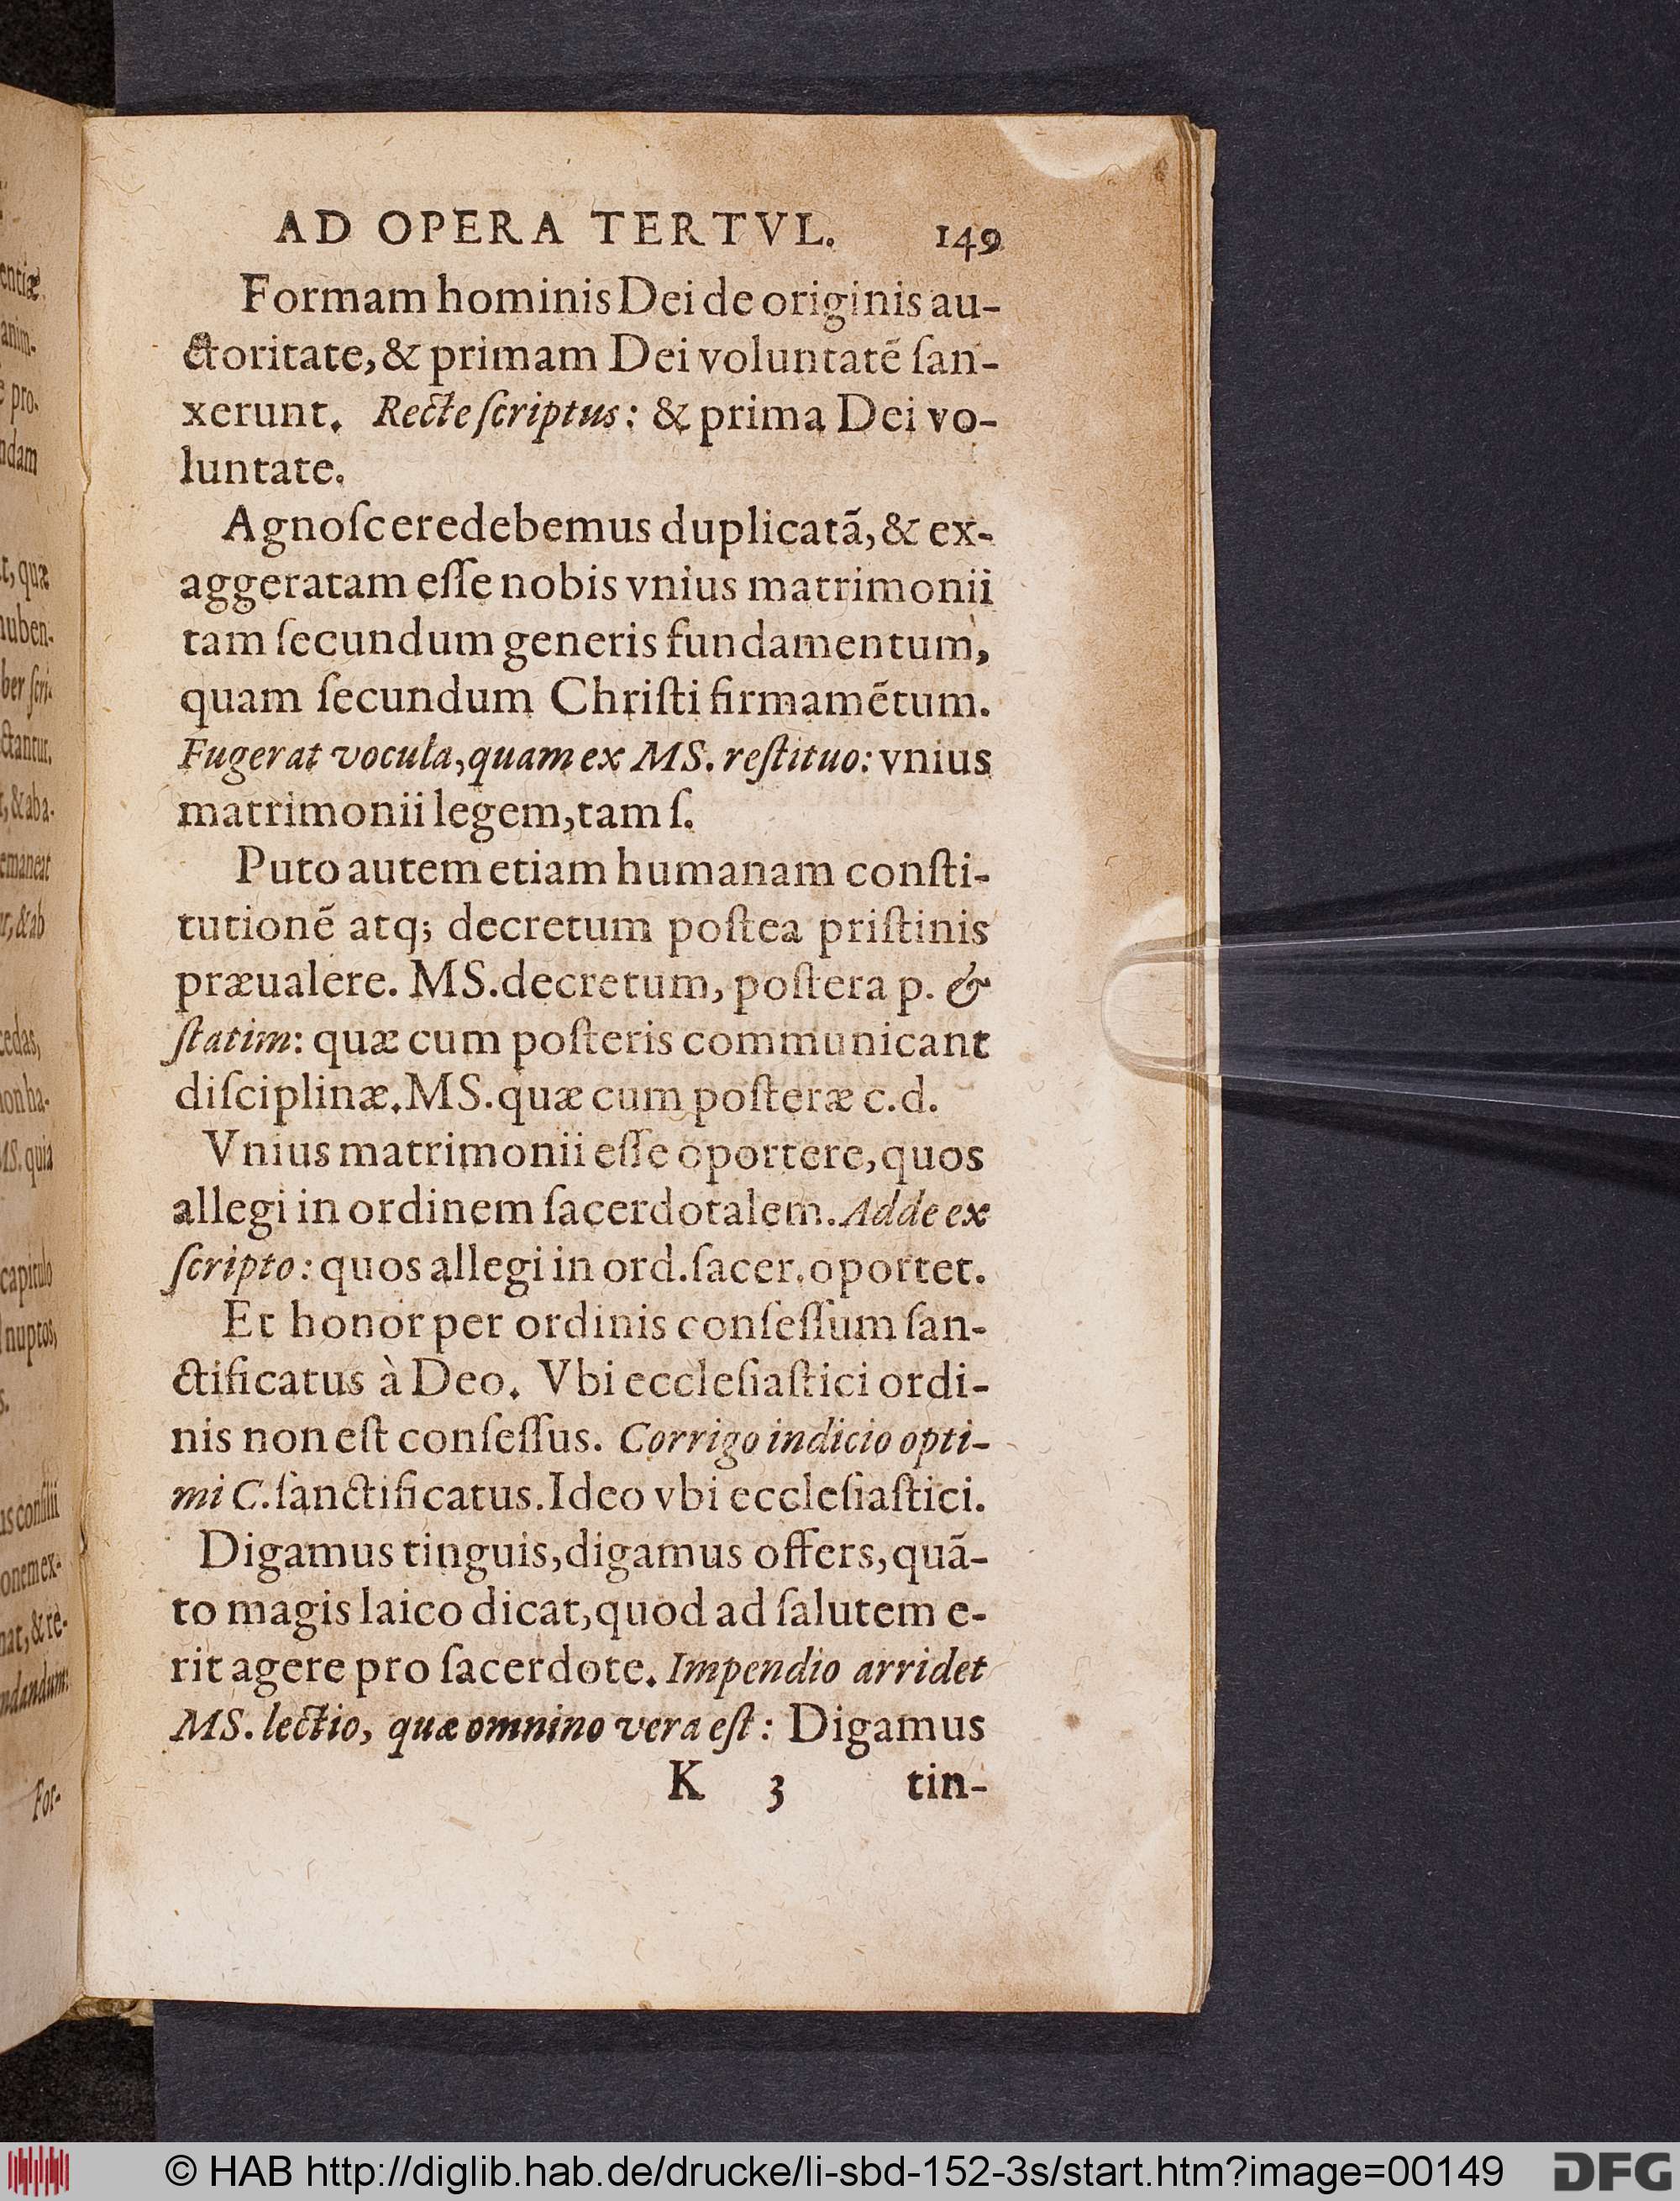 AD OPERA TERTVL. 149
Formam hominis Dei de originis au-
ctoritate, & primam Dei voluntatẽ ſan-
xerunt. Recte ſcriptus: & prima Dei vo-
luntate.
Agnoſcere debemus duplicatã, & ex-
aggeratam eſſe nobis vnius matrimonii
tam ſecundum generis fundamentum,
quam ſecundum Chriſti firmamẽtum.
Fugerat vocula, quam ex MS. reſtituo: vnius
matrimonii legem, tam ſ.
Puto autem etiam humanam conſti-
tutionẽ atq; decretum poſtea priſtinis
præualere. MS. decretum, poſtera p. &
ſtatim: quæ cum poſteris communicant
diſciplinæ. MS. quæ cum poſteræ c. d.
Vnius matrimonii eſſe oportere, quos
allegi in ordinem ſacerdotalem. Adde ex
ſcripto: quos allegi in ord. ſacer. oportet.
Et honor per ordinis conſeſſum ſan-
ctificatus à Deo. Vbi eccleſiaſtici ordi-
nis non eſt conſeſſus. Corrigo indicio opti-
mi C. ſanctificatus. Ideo vbi eccleſiaſtici.
Digamus tinguis, digamus offers, quã-
to magis laico dicat, quod ad ſalutem e-
rit agere pro ſacerdote. Impendio arridet
MS. lectio, quæ omnino vera eſt: Digamus
K 3 tin-
entiæ
anim-
pro-
ndam
t, quæ
nuben-
ber ſcri-
ctantur.
t, & aba-
emaneat
r, & ab
cedas,
non ha-
MS. quia
capitulo
nuptos,
s.
us conſilii
onem ex-
nat, & re-
ndandum:
For-
© HAB http://diglib.hab.de/drucke/li-sbd-152-3s/start.htm?image=00149
DFG